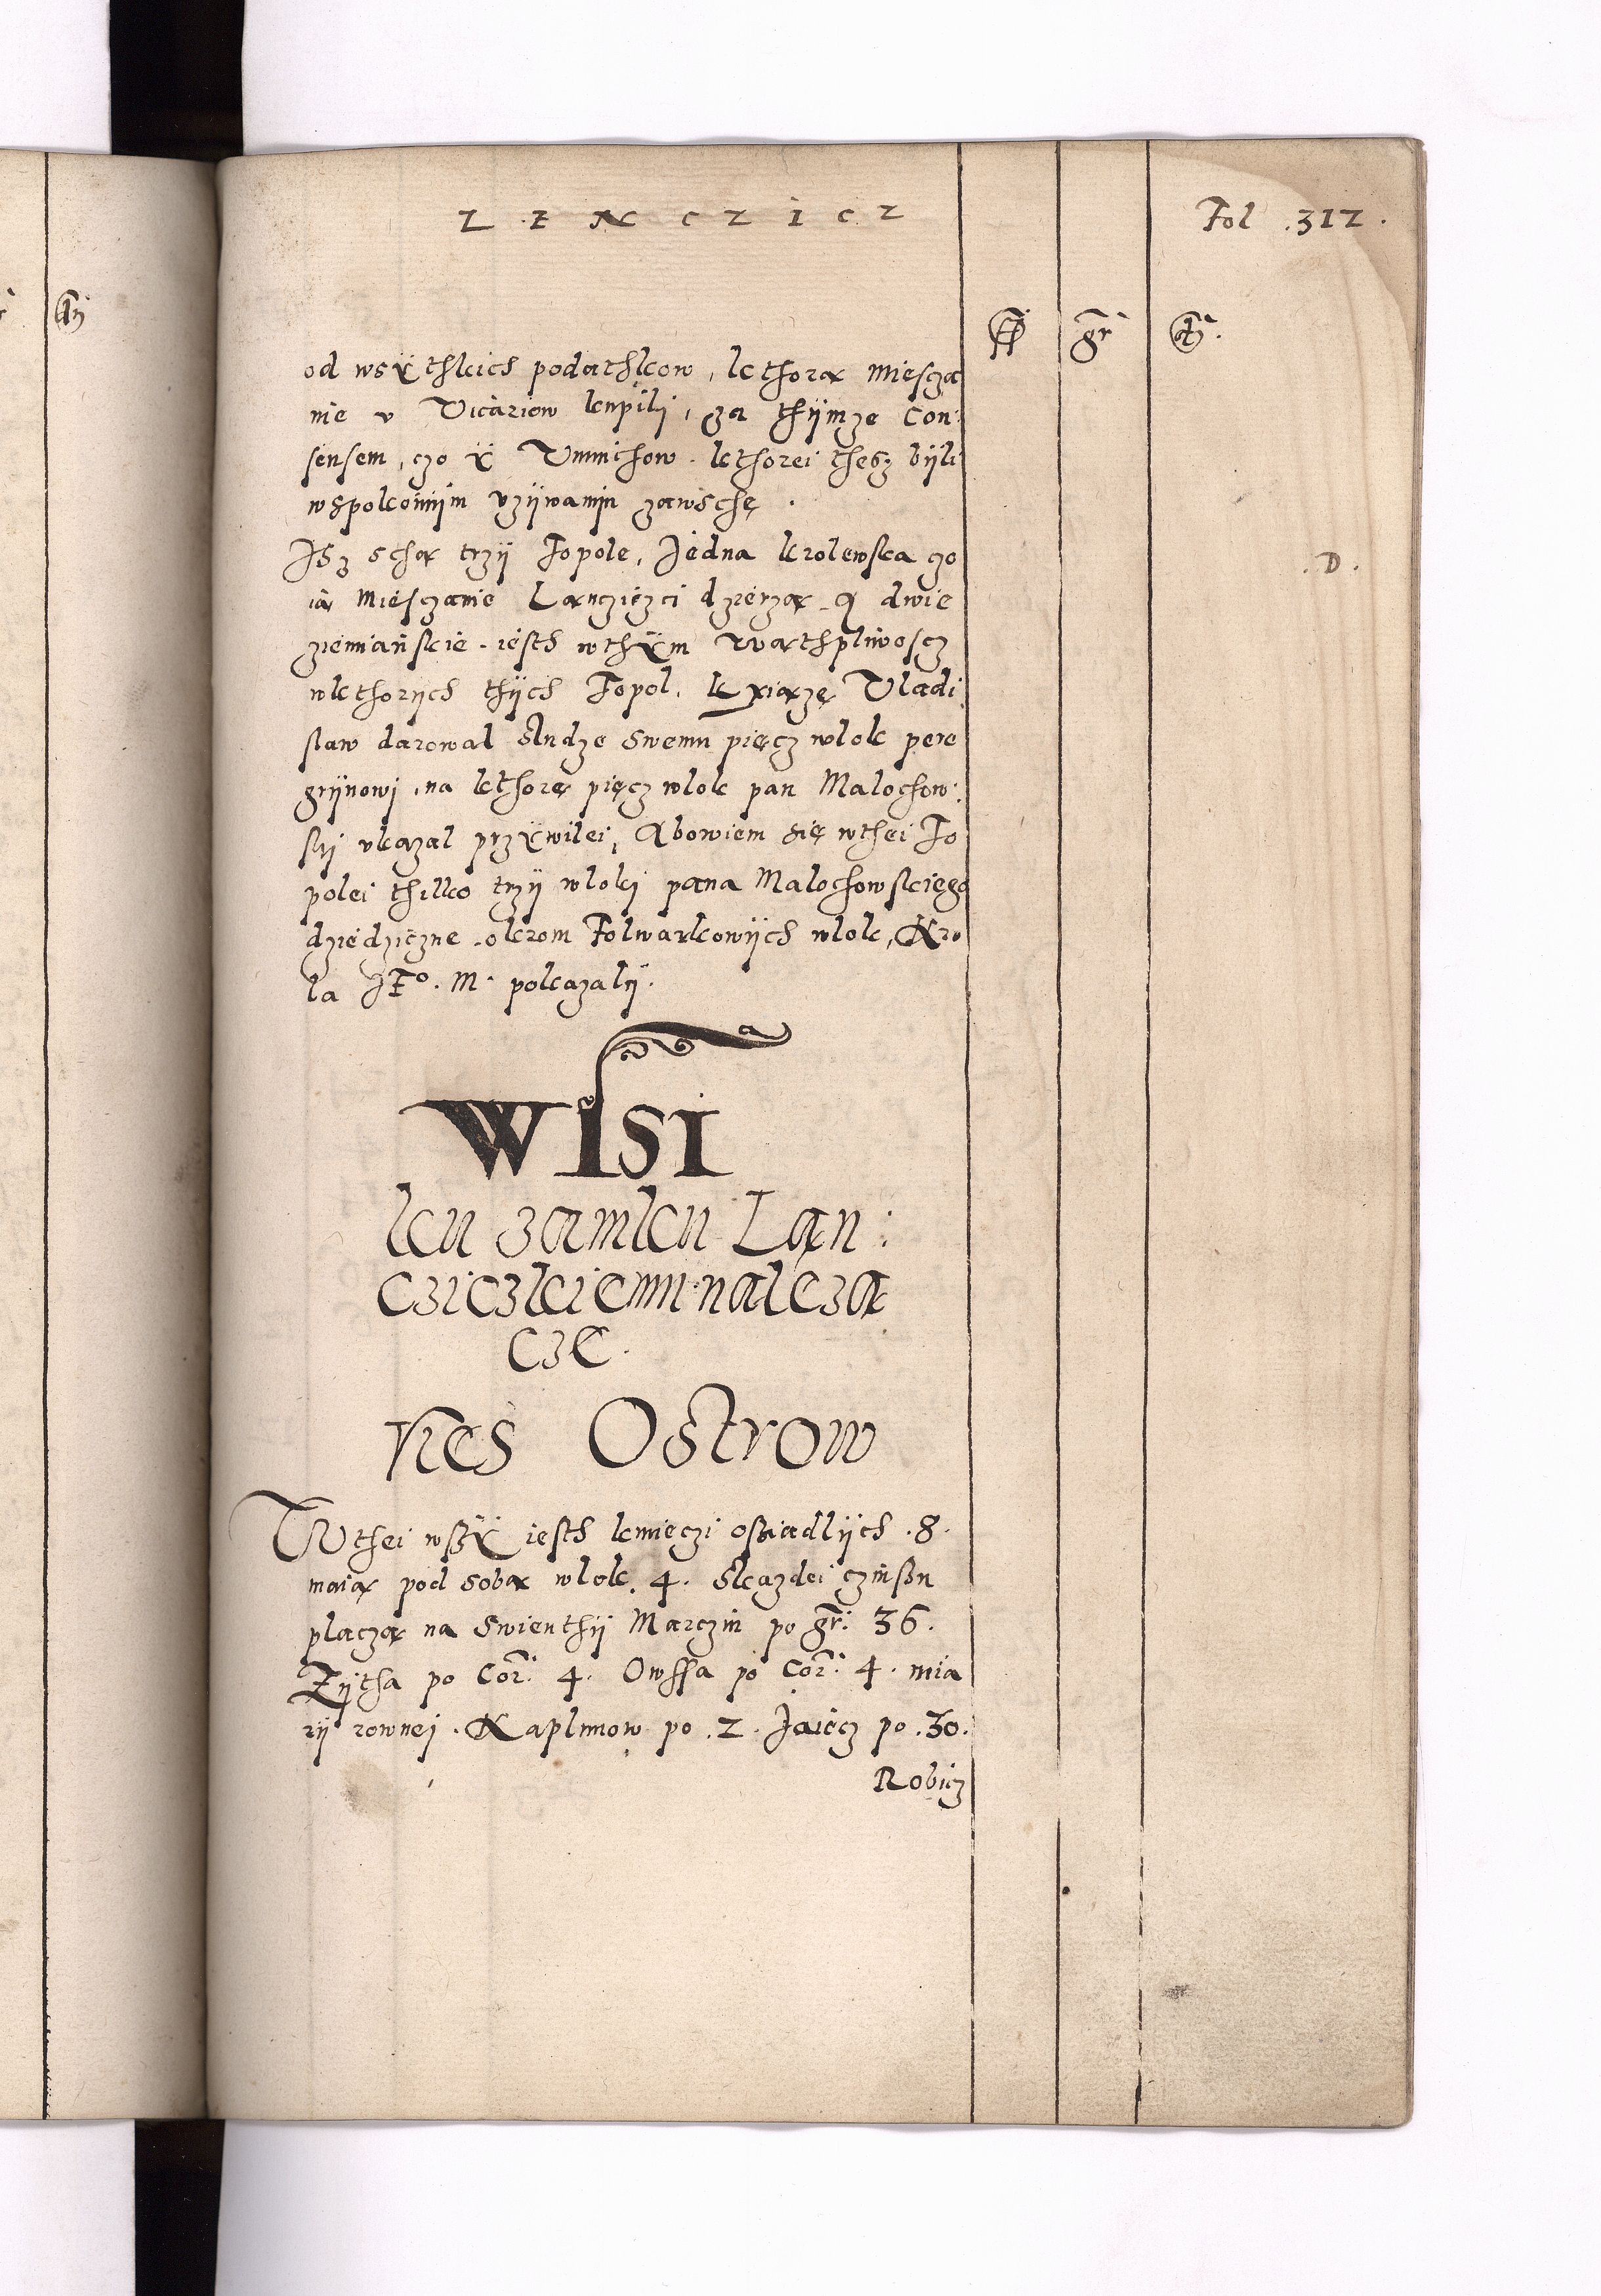 LENCZICZ
Fol .312.
fl gr d.
od wsÿthkich podathkow, kthorą Miescza
nie v Vicariow kupili, za thijmze Con:
sensem, czo ÿ Vmnichow. kthorei thesz bijli
wspolconnijm vzijwaniu zawsche.
Isz schą trzij Topole, Jedna krolewska czo
ią Miesczanie Lanczicżci dzierzą. A dwie
ziemianskie. iesth wthÿm wathpliwoscz
wkthorijch thijch Topol, kxiąże Vladi
slaw darowal Sludze Swemu pięcz wlok pere
grijnowi, na kthorę pięcz wlok pan Malochow:
skij vkazal przÿwilei, Abowiem się wthei To
polei thilko trzij wloki pana Malochowskiego
dziedziczne. okrom Folwarkowijch wlok, Kro
la JE°. M. pokazalij.
.D.
WISI
ku zamku Ląn:
cziczkiemu naleza
cze.
Vies Ostrow
Wthei wszÿ iesth kmieczi osziadlijch .8.
maią pod sobą wlok. 4. Skazdei czinszu
placzą na Swienthij Marczin po gr. 36.
Zijtha po Cor: 4. Owssa po Cor: 4. mia
rij rownej. Kaplunow po .2. Jaiecz po .30.
Robicz